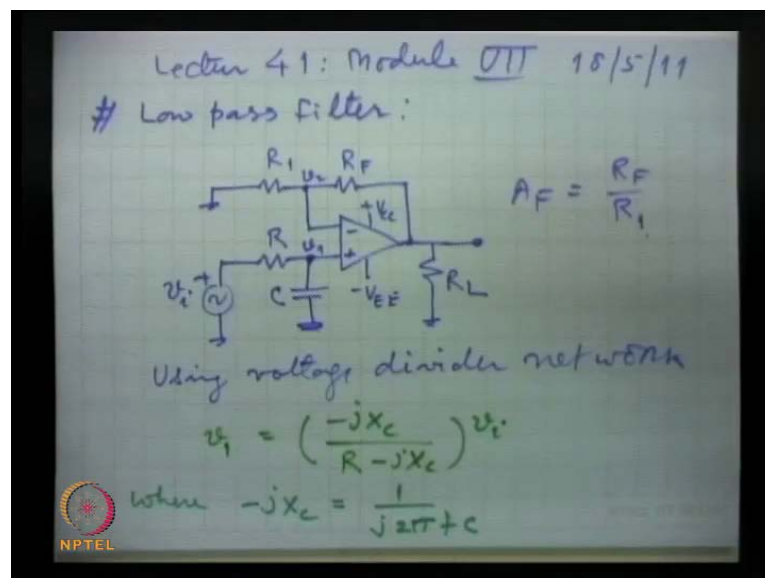 Lectur 41: Module VIII 18/5/11
# Low pass filter:
R₁ v₂ R_F
A_F = R_F / R₁
+V_CC
R v₁ - +
v_i + C -V_EE R_L
Using voltage divider network
v₁ = (-jX_C / (R - jX_C)) v_i
where -jX_C = 1 / (j 2π f C)
NPTEL